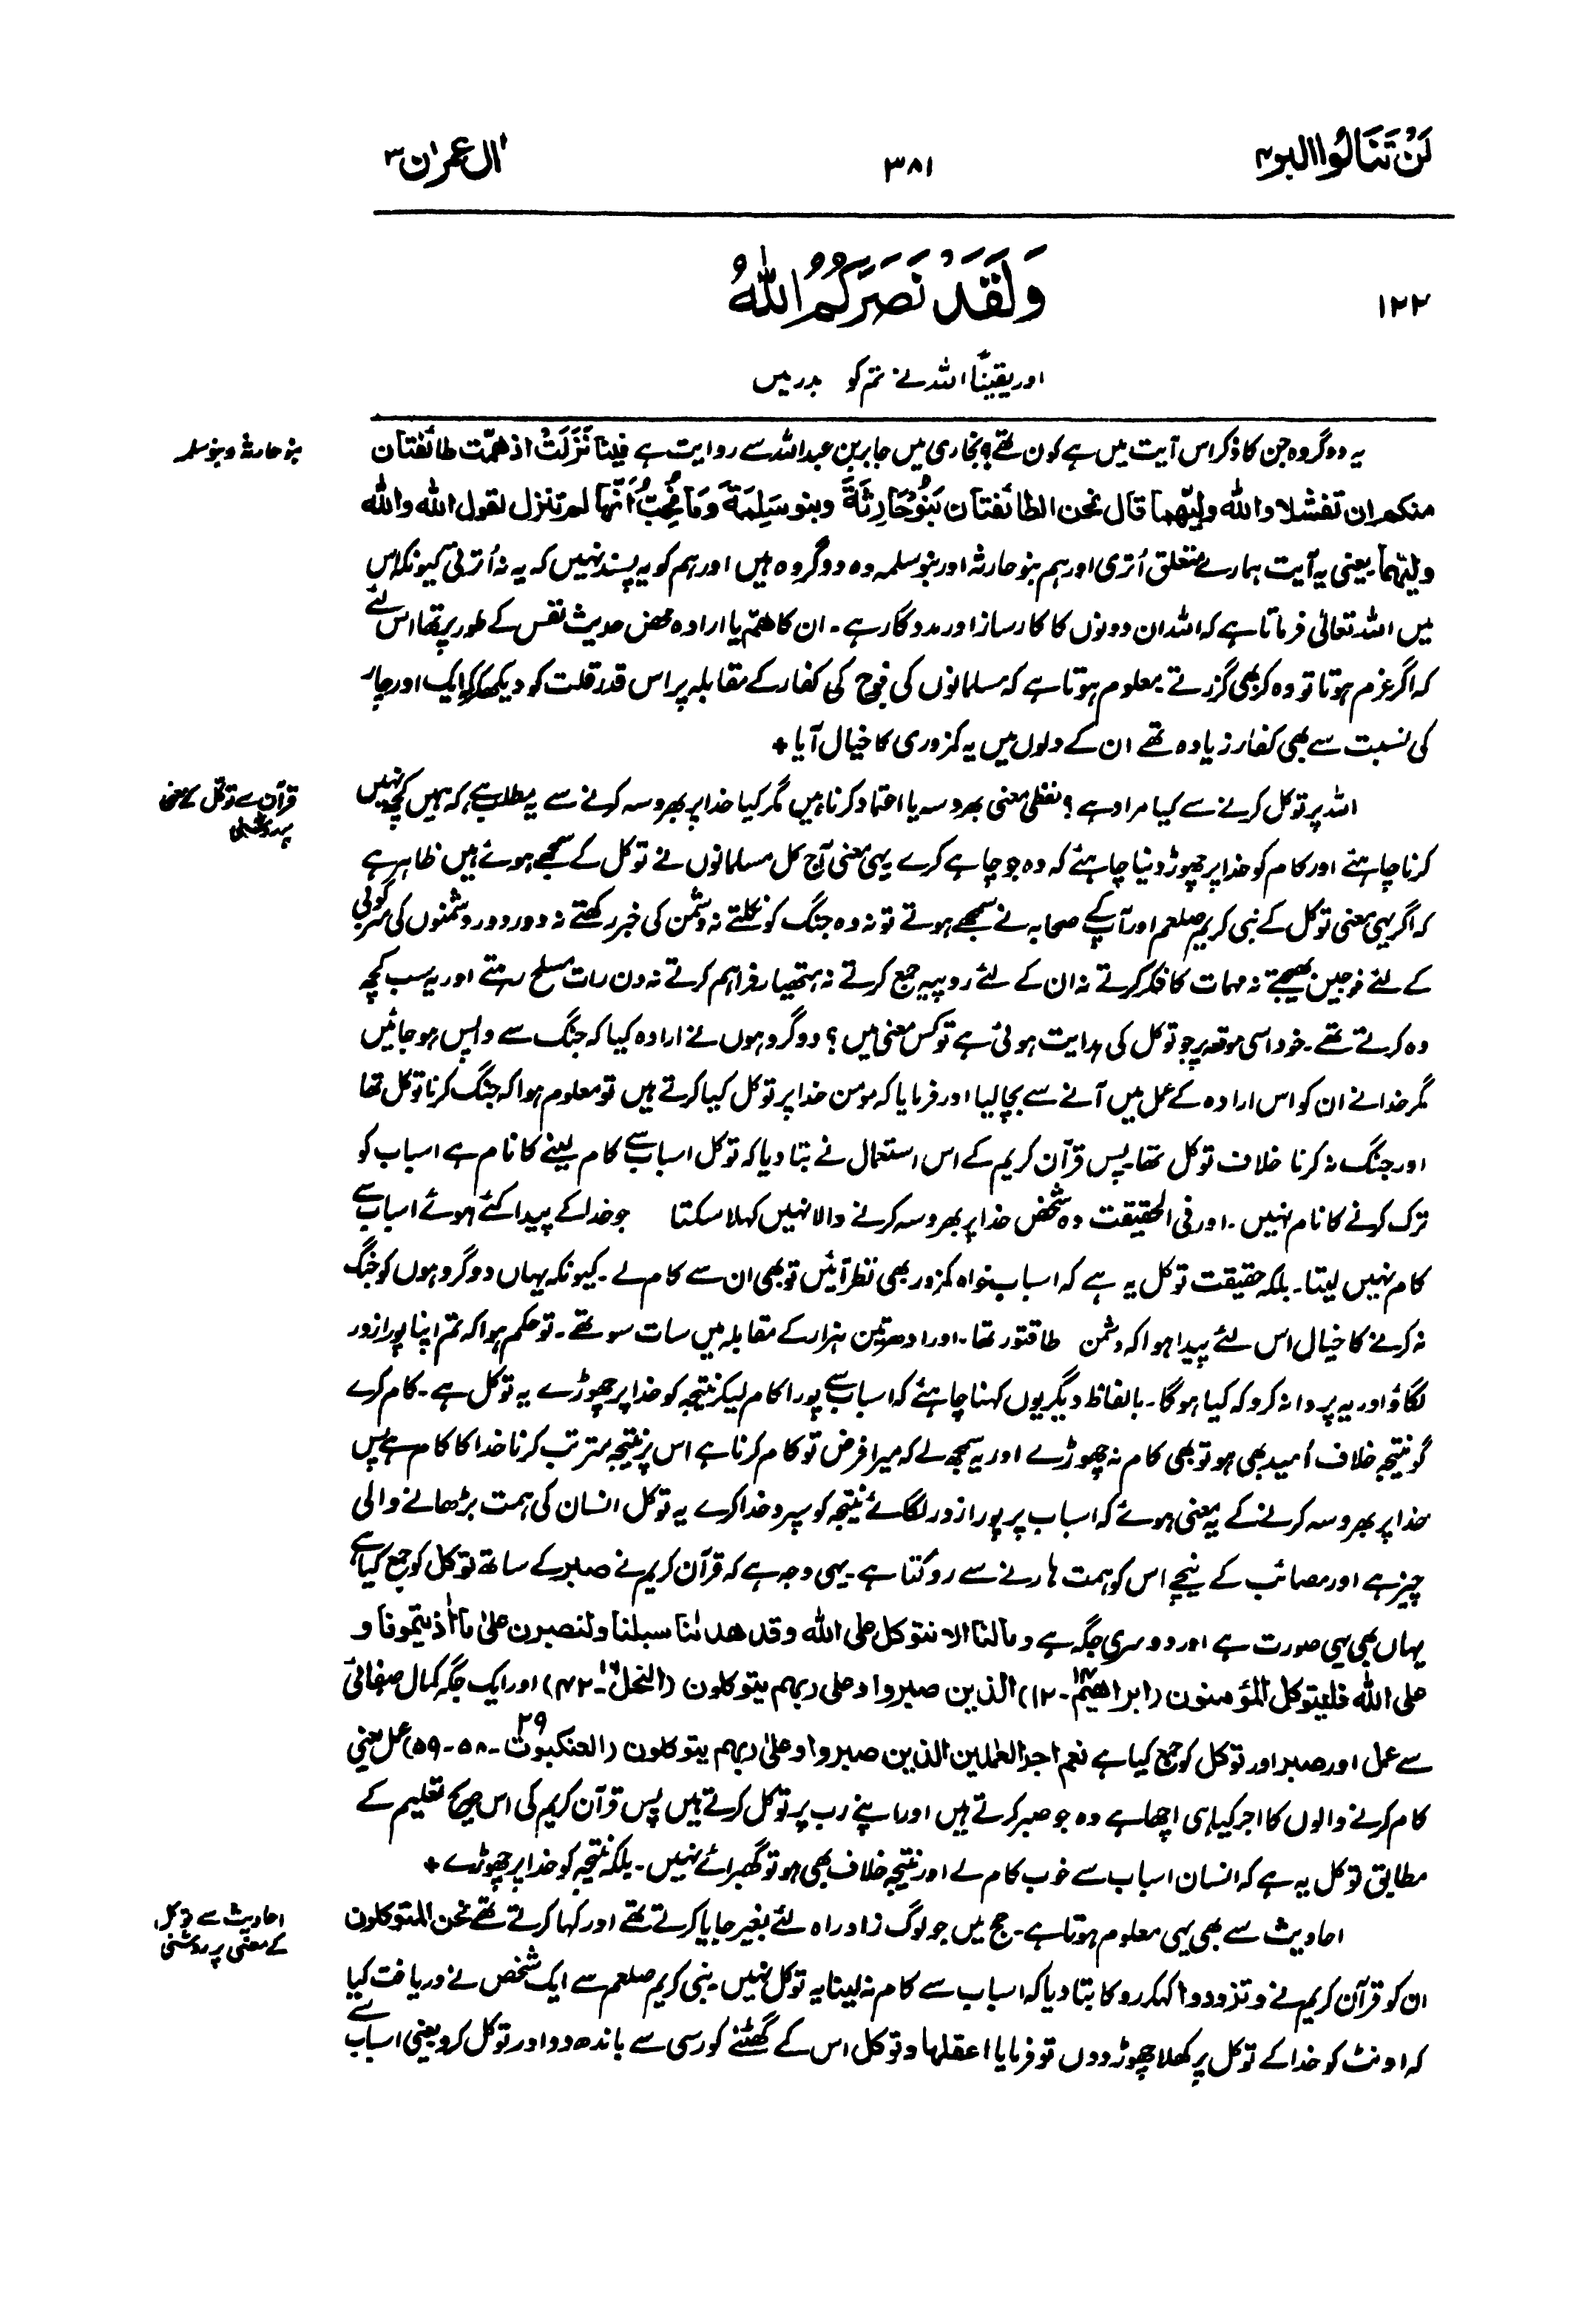 لَنْ تَنَالُوا البر ۴
۳۸۱
اٰل عمرٰن ۳
۱۲۲
وَلَقَدْ نَصَرَكُمُ اللّٰهُ
اور یقیناً اللہ نے تم کو بدر میں
بنو حارثہ و بنو سلمہ
یہ دو گروہ جن کا ذکر اس آیت میں ہے کون تھے؟ بخاری میں جابر بن عبداللہ سے روایت ہے فینا نَزَلَتْ اذ ھمّت طائفتان
منکم ان تفشلا واللّٰه ولیّھما قال نحن الطائفتان بَنُوْحَارِثَةَ وبنو سَلِمَةَ وَمَا نُحِبُّ اَنَّھا لم تنزل لقول اللّٰه واللّٰه
ولیّھما۔ یعنی یہ آیت ہمارے متعلق اُتری اور ہم بنو حارثہ اور بنو سلمہ وہ دو گروہ ہیں اور ہم کو یہ پسند نہیں کہ یہ نہ اُترتی کیونکہ اس
میں اللہ تعالیٰ فرماتا ہے کہ اللہ ان دونوں کا کارساز اور مددگار ہے۔ ان کا ھمّ یا ارادہ محض حدیث نفس کے طور پر تھا اس لئے
کہ اگر عزم ہوتا تو وہ کر بھی گزرتے۔ معلوم ہوتا ہے کہ مسلمانوں کی فوج کی کفار کے مقابلہ پر اس قدر قلت کو دیکھ کر کہ ایک اور چار
کی نسبت سے بھی کفار زیادہ تھے ان کے دلوں میں یہ کمزوری کا خیال آیا +
قرآن سے توکل کے معنی
پر روشنی
اللہ پر توکل کرنے سے کیا مراد ہے؟ لفظی معنی بھروسہ یا اعتماد کرنا ہیں مگر کیا خدا پر بھروسہ کرنے سے یہ مطلب ہے، کہ ہمیں کچھ نہیں
کرنا چاہئے اور کام کو خدا پر چھوڑ دینا چاہئے کہ وہ جو چاہے کرے یہی معنی آج کل مسلمانوں نے توکل کے سمجھے ہوئے ہیں ظاہر ہے
کہ اگر یہی معنی توکل کے نبی کریم صلعم اور آپ کے صحابہ نے سمجھے ہوتے تو نہ وہ جنگ کو نکلتے نہ دشمن کی خبر رکھتے نہ دور دور دشمنوں کی سرکوبی
کے لئے فوجیں بھیجتے نہ مہمات کا فکر کرتے نہ ان کے لئے روپیہ جمع کرتے نہ ہتھیار فراہم کرتے نہ دن رات مسلح رہتے اور یہ سب کچھ
وہ کرتے تھے۔ خود اسی موقعہ پر جو توکل کی ہدایت ہوئی ہے تو کس معنی میں؟ دو گروہوں نے ارادہ کیا کہ جنگ سے واپس ہو جائیں
مگر خدا نے ان کو اس ارادہ کے عمل میں آنے سے بچا لیا اور فرمایا کہ مومن خدا پر توکل کیا کرتے ہیں تو معلوم ہوا کہ جنگ کرنا توکل تھا
اور جنگ نہ کرنا خلاف توکل تھا۔ پس قرآن کریم کے اس استعمال نے بتا دیا کہ توکل اسباب سے کام لینے کا نام ہے اسباب کو
ترک کرنے کا نام نہیں۔ اور فی الحقیقت وہ شخص خدا پر بھروسہ کرنے والا نہیں کہلا سکتا جو خدا کے پیدا کئے ہوئے اسباب سے
کام نہیں لیتا۔ بلکہ حقیقت توکل یہ ہے کہ اسباب خواہ کمزور بھی نظر آئیں تو بھی ان سے کام لے۔ کیونکہ یہاں دو گروہوں کو جنگ
نہ کرنے کا خیال اس لئے پیدا ہوا کہ دشمن طاقتور تھا۔ اور ادھر تین ہزار کے مقابلہ میں سات سو تھے۔ تو حکم ہوا کہ تم اپنا پورا زور
لگاؤ اور یہ پروا نہ کرو کہ کیا ہوگا۔ بالفاظ دیگر یوں کہنا چاہئے کہ اسباب سے پورا کام لیکر نتیجہ کو خدا پر چھوڑے یہ توکل ہے۔ کام کرے
گو نتیجہ خلاف اُمید بھی ہو تو بھی کام نہ چھوڑے اور یہ سمجھ لے کہ میرا فرض تو کام کرنا ہے اس پر نتیجہ مترتب کرنا خدا کا کام ہے پس
خدا پر بھروسہ کرنے کے یہ معنی ہوئے کہ اسباب پر پورا زور لگائے نتیجہ کو سپرد خدا کرے یہ توکل انسان کی ہمت بڑھانے والی
چیز ہے اور مصائب کے نیچے اس کو ہمت ہارنے سے روکتا ہے۔ یہی وجہ ہے کہ قرآن کریم نے صبر کے ساتھ توکل کو جمع کیا ہے
یہاں بھی یہی صورت ہے اور دوسری جگہ ہے وما لنا الا نتوکل علی اللّٰه وقد ھدٰنا سبلنا ولنصبرن علیٰ ما اٰذیتمونا و
علی اللّٰه فلیتوکل المؤمنون (ابراھیم ۱۴۔۱۲) الذین صبروا وعلی ربھم یتوکلون (النحل ۱۶۔۴۲) اور ایک جگہ کمال صفائی
سے عمل اور صبر اور توکل کو جمع کیا ہے نعم اجر العٰملین الذین صبروا وعلیٰ ربھم یتوکلون (العنکبوت ۲۹۔۵۸۔۵۹) عمل یعنی
کام کرنے والوں کا اجر کیا ہی اچھا ہے وہ جو صبر کرتے ہیں اور اپنے رب پر توکل کرتے ہیں پس قرآن کریم کی اس صریح تعلیم کے
مطابق توکل یہ ہے کہ انسان اسباب سے خوب کام لے اور نتیجہ خلاف بھی ہو تو گھبرائے نہیں۔ بلکہ نتیجہ کو خدا پر چھوڑے +
احادیث سے توکل
کے معنی پر روشنی
احادیث سے بھی یہی معلوم ہوتا ہے۔ حج میں جو لوگ زاد راہ لئے بغیر جایا کرتے تھے اور کہا کرتے تھے نحن المتوکلون
ان کو قرآن کریم نے وتزودوا کہکر روکا بتا دیا کہ اسباب سے کام نہ لینا یہ توکل نہیں۔ نبی کریم صلعم سے ایک شخص نے دریافت کیا
کہ اونٹ کو خدا کے توکل پر کھلا چھوڑ دوں تو فرمایا اعقلھا وتوکل اس کے گھٹنے کو رسی سے باندھ دو اور توکل کرو یعنی اسباب سے